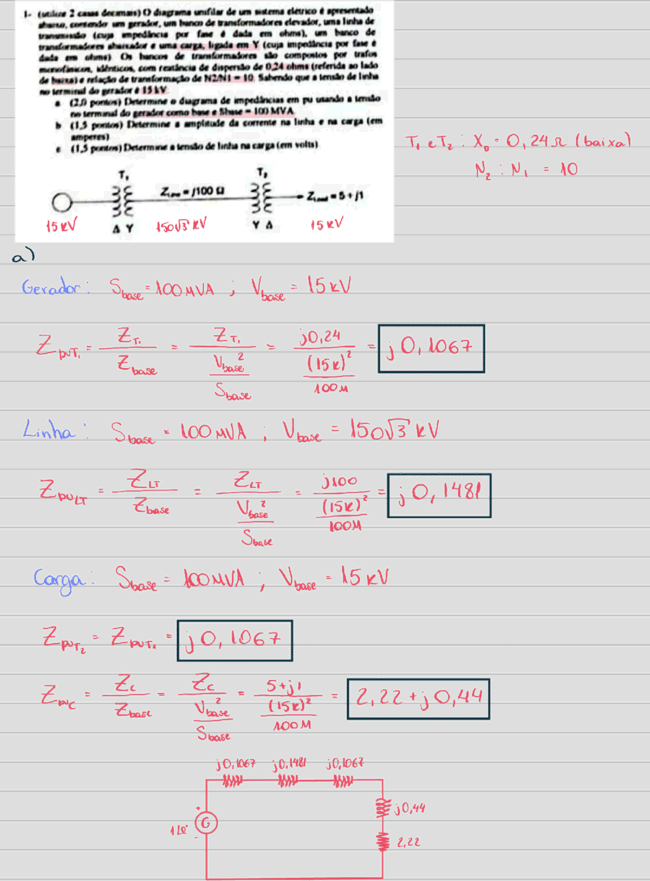 1- (utilize 2 casas decimais) O diagrama unifilar de um sistema elétrico é apresentado
abaixo, contendo um gerador, um banco de transformadores elevador, uma linha de
transmissão (cuja impedância por fase é dada em ohms), um banco de
transformadores abaixador e uma carga, ligada em Y (cuja impedância por fase é
dada em ohms). Os bancos de transformadores são compostos por trafos
monofásicos, idênticos, com reatância de dispersão de 0,24 ohms (referida ao lado
de baixa) e relação de transformação de N2/N1 = 10. Sabendo que a tensão de linha
no terminal do gerador é 15 kV.
a (2,0 pontos) Determine o diagrama de impedâncias em pu usando a tensão
no terminal do gerador como base e Sbase = 100 MVA.
b (1,5 pontos) Determine a amplitude da corrente na linha e na carga (em
amperes)
c (1,5 pontos) Determine a tensão de linha na carga (em volts)
T₁ e T₂ : X₀ = 0,24 Ω (baixa)
N₂ : N₁ = 10
T₁ T₂
Z_Line = j100 Ω Z_Load = 5 + j1
15 kV Δ Y 150√3 kV Y Δ 15 kV
a)
Gerador: Sbase = 100 MVA ; Vbase = 15 kV
Zpu T₁ = Z T₁ / Zbase = Z T₁ / (Vbase² / Sbase) = j0,24 / ((15k)² / 100M) = j0,1067
Linha: Sbase = 100 MVA ; Vbase = 150√3 kV
Zpu LT = Z LT / Zbase = Z LT / (Vbase² / Sbase) = j100 / ((15k)² / 100M) = j0,1481
Carga: Sbase = 100 MVA ; Vbase = 15 kV
Zpu T₂ = Zpu T₁ = j0,1067
Zpu C = Z C / Zbase = Z C / (Vbase² / Sbase) = 5+j1 / ((15k)² / 100M) = 2,22 + j0,44
j0,1067 j0,1481 j0,1067
j0,44
1∠0° G
2,22